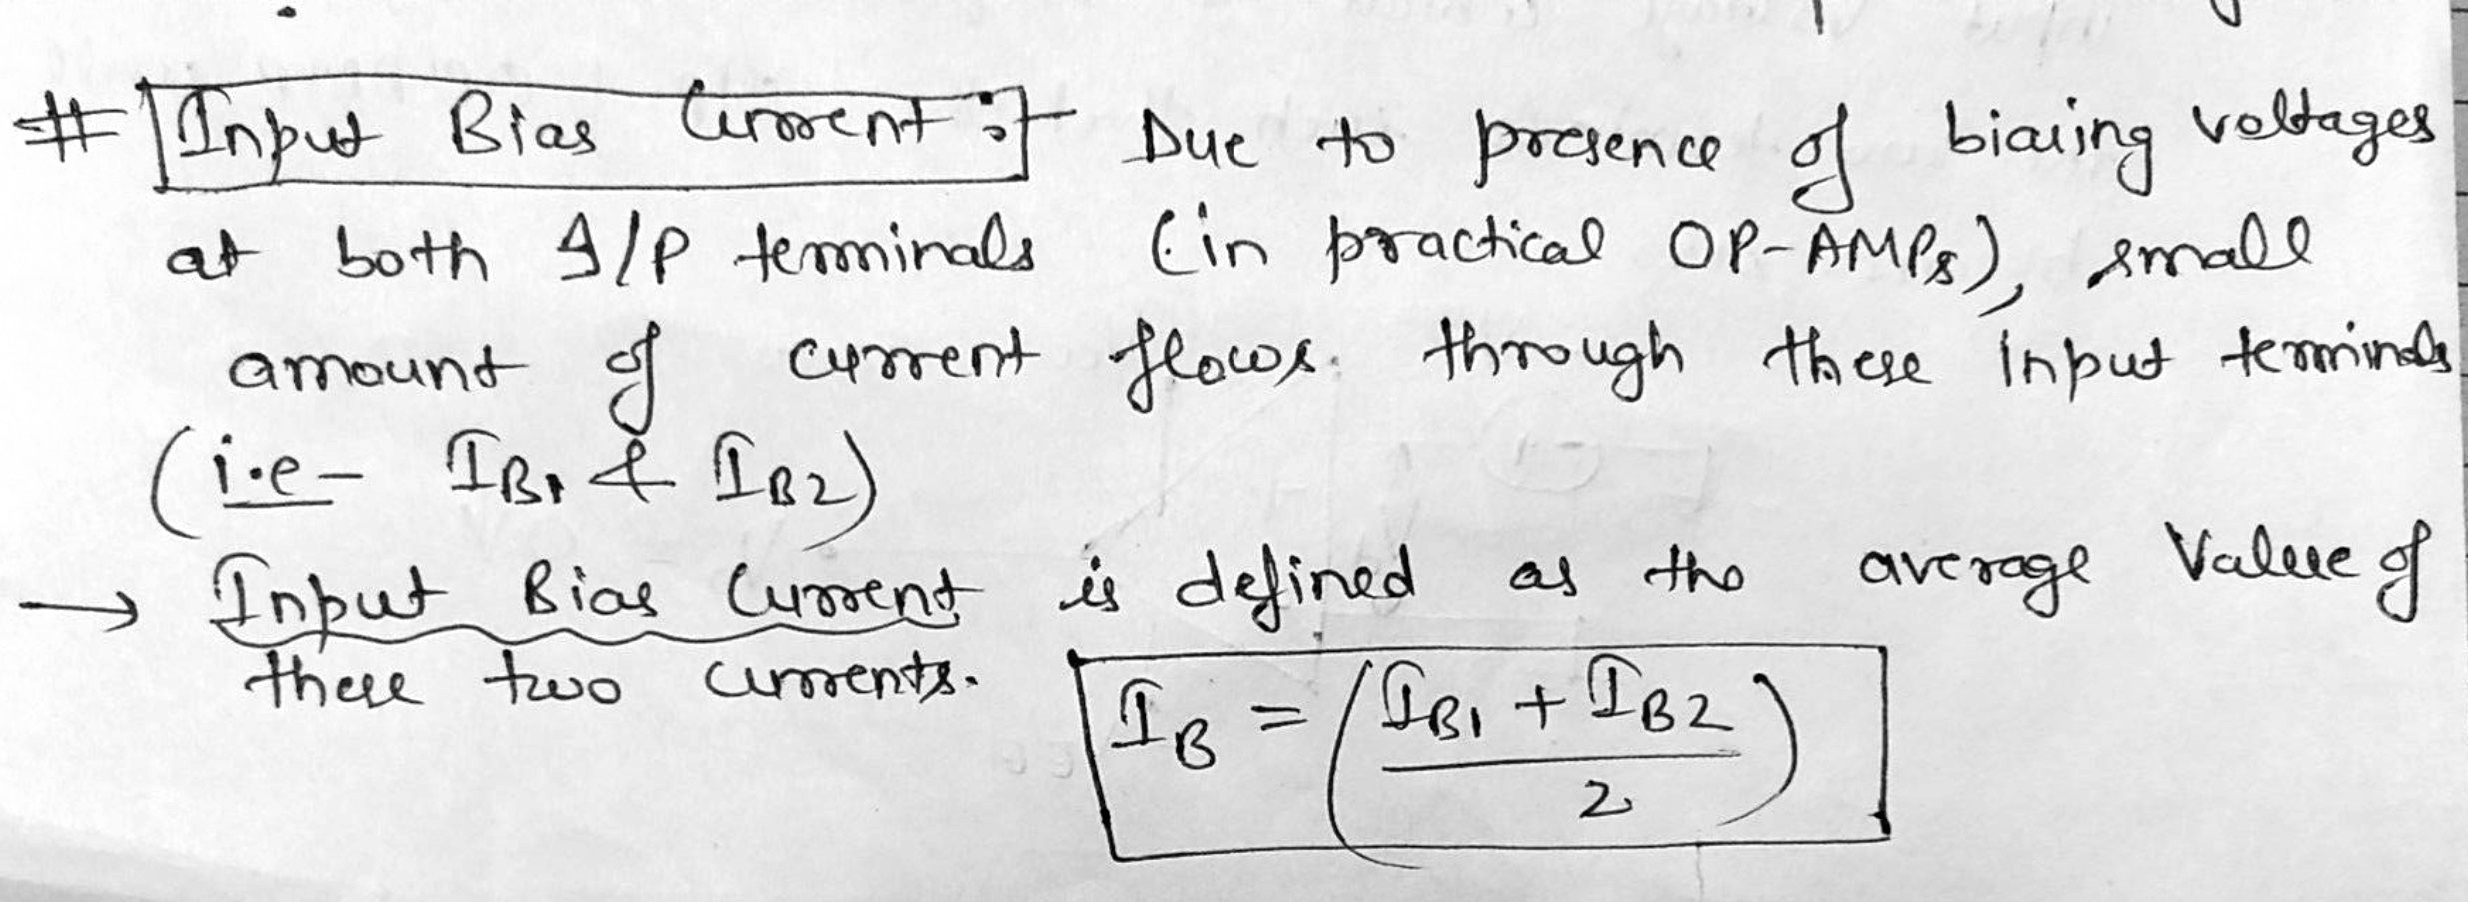 # Input Bias Current :- Due to presence of biasing voltages
at both I/P terminals (in practical OP-AMPs), small
amount of current flows. through these input terminals
(i.e- IB1 & IB2)
→ Input Bias Current is defined as the average Value of
these two currents.
IB = (IB1 + IB2 / 2)